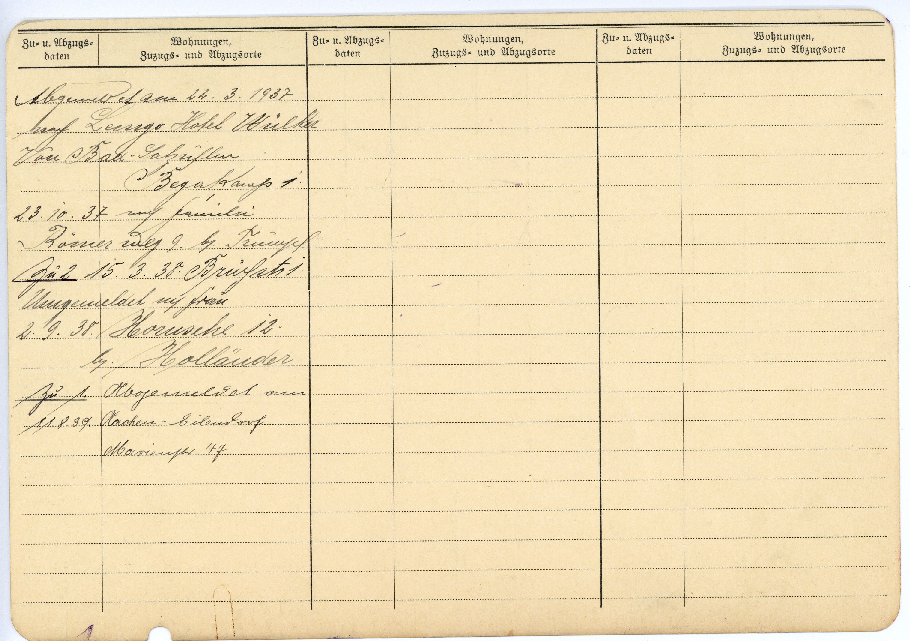 Zu- u. Abzugs-
daten
Wohnungen,
Zuzugs- und Abzugsorte
Zu- u. Abzugs-
daten
Wohnungen,
Zuzugs- und Abzugsorte
Zu- u. Abzugs-
daten
Wohnungen,
Zuzugs- und Abzugsorte
Abgemeldet am 22. 3. 1937
nach Lemgo Hotel
Von Bad-Salzuflen
Begakamp 1
23. 10. 37
Römerweg 9. bj Trumpf
Zu 2 15. 3. 38
Umgemeldet
2. 9. 38. Hornsche 12.
bj. Holländer
Zu 1. Abgemeldet am
11.8.39. Aachen-Eilendorf
Marienstr 47